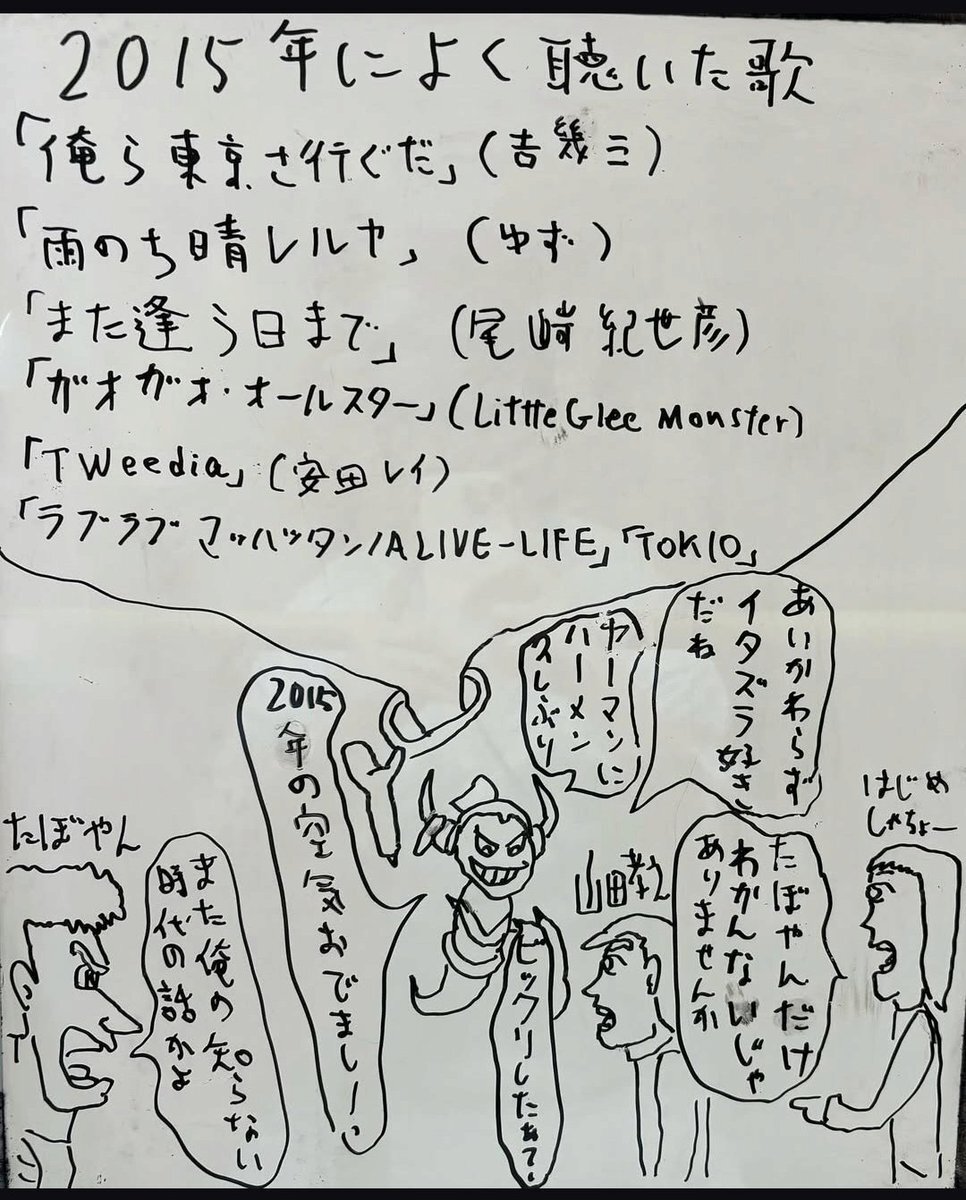 2015年によく聴いた歌
「俺ら東京さ行ぐだ」(吉幾三)
「雨のち晴レルヤ」(ゆず)
「また逢う日まで」(尾崎紀世彦)
「ガオガオ・オールスター」(Little Glee Monster)
「TWeedia」(安田レイ)
「ラブラブマンハッタン/ALIVE-LIFE」「TOKIO」
あいかわらず
イタズラ好き
だね
ヤーマンに
ハーメン
久しぶり
2015年の空気おでまし!
ビックリしたぁ?
はじめ
しゃちょー
たぼやんだけ
わかんないじゃ
ありませんか
山田孝之
たぼやん
また俺の知らない
時代の話かよ